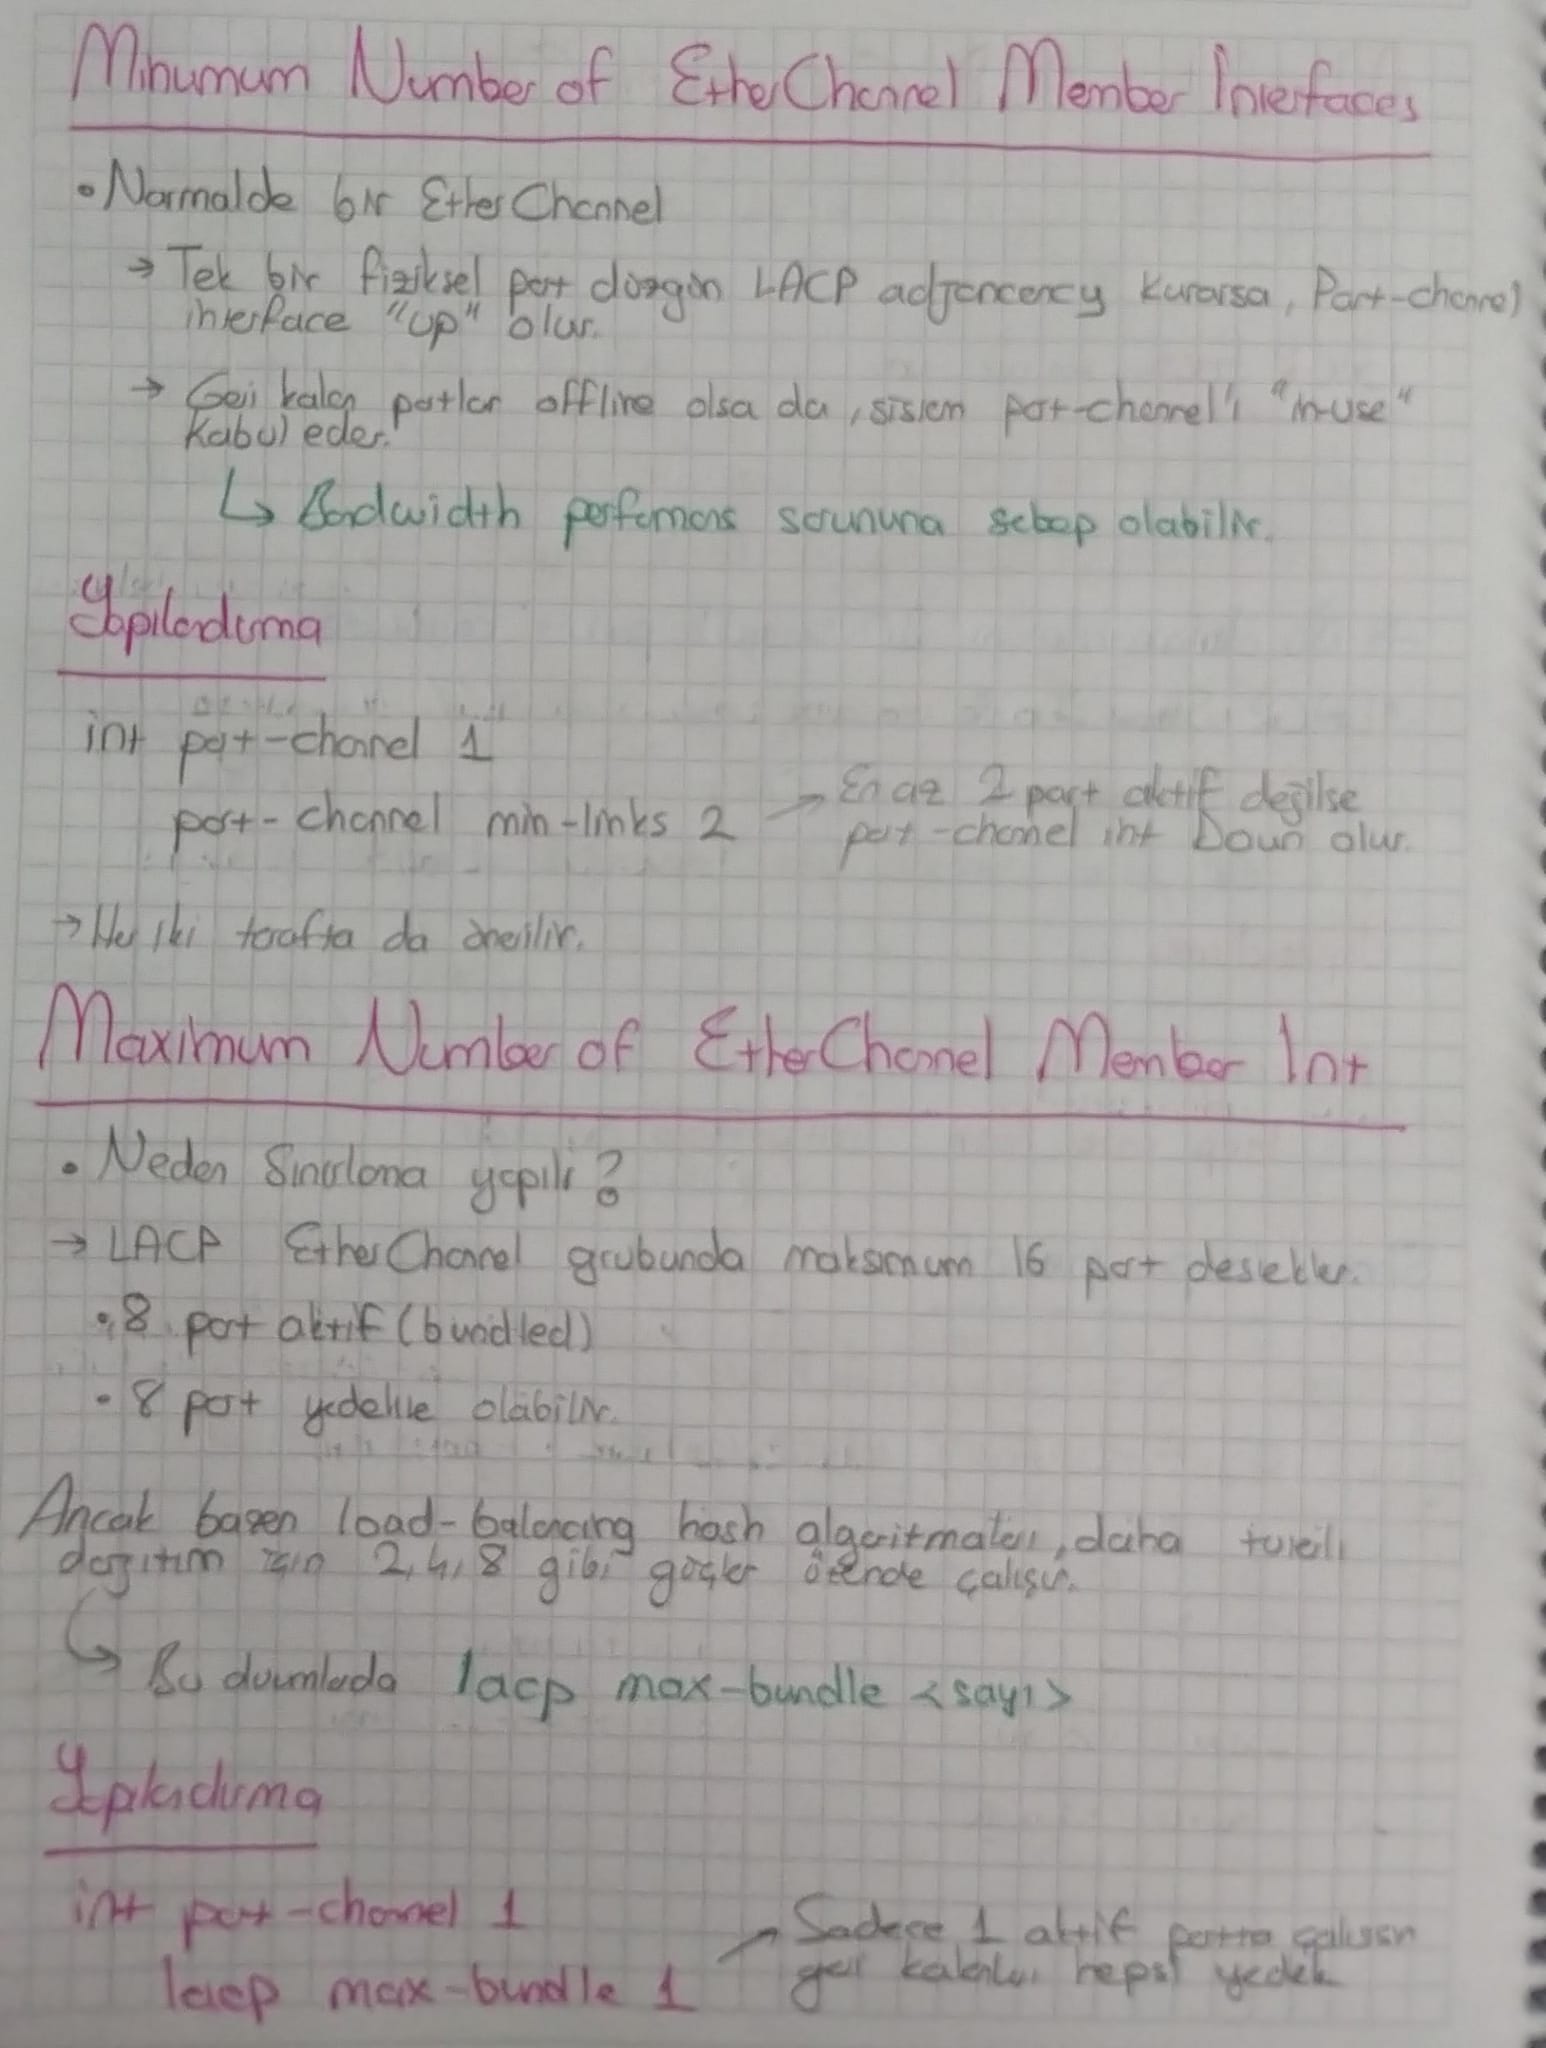 Minumum Number of EtherChannel Member Interfaces
• Normalde bir EtherChannel
→ Tek bir fiziksel port düzgün LACP adjancency kurarsa, Port-channel
interface "up" olur.
→ Geri kalan portlar offline olsa da, sistem port-channel'ı "in-use"
kabul eder.
↳ Bandwidth performans sorununa sebep olabilir.
Yapılandırma
int port-channel 1
port-channel min-links 2 → En az 2 port aktif değilse
port-channel int Down olur.
→ Her iki tarafta da önerilir.
Maximum Number of EtherChannel Member Int
• Neden Sınırlama yapılır?
→ LACP EtherChannel grubunda maksimum 16 port destekler.
• 8 port aktif (bundled)
• 8 port yedekte olabilir.
Ancak bazen load-balancing hash algoritmaları, daha
dağıtım için 2, 4, 8 gibi güçler üzerinde çalışır.
↳ Bu durumlarda lacp max-bundle <sayı>
Yapılandırma
int port-channel 1
lacp max-bundle 1 → Sadece 1 aktif portta çalışsın
geri kalanları hepsi yedek